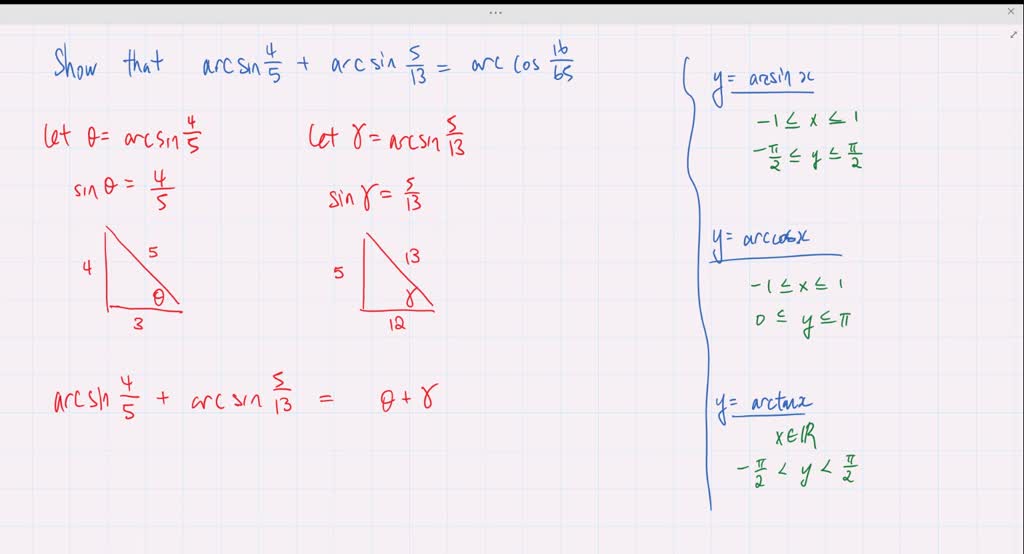 Show that arcsin 4/5 + arcsin 5/13 = arc cos 16/65
let θ = arcsin 4/5
sin θ = 4/5
4 5 θ 3
let γ = arcsin 5/13
sin γ = 5/13
5 13 γ 12
arcsin 4/5 + arcsin 5/13 = θ + γ
y = arcsin x
-1 ≤ x ≤ 1
-π/2 ≤ y ≤ π/2
y = arccosx
-1 ≤ x ≤ 1
0 ≤ y ≤ π
y = arctanx
x∈ℝ
-π/2 < y < π/2